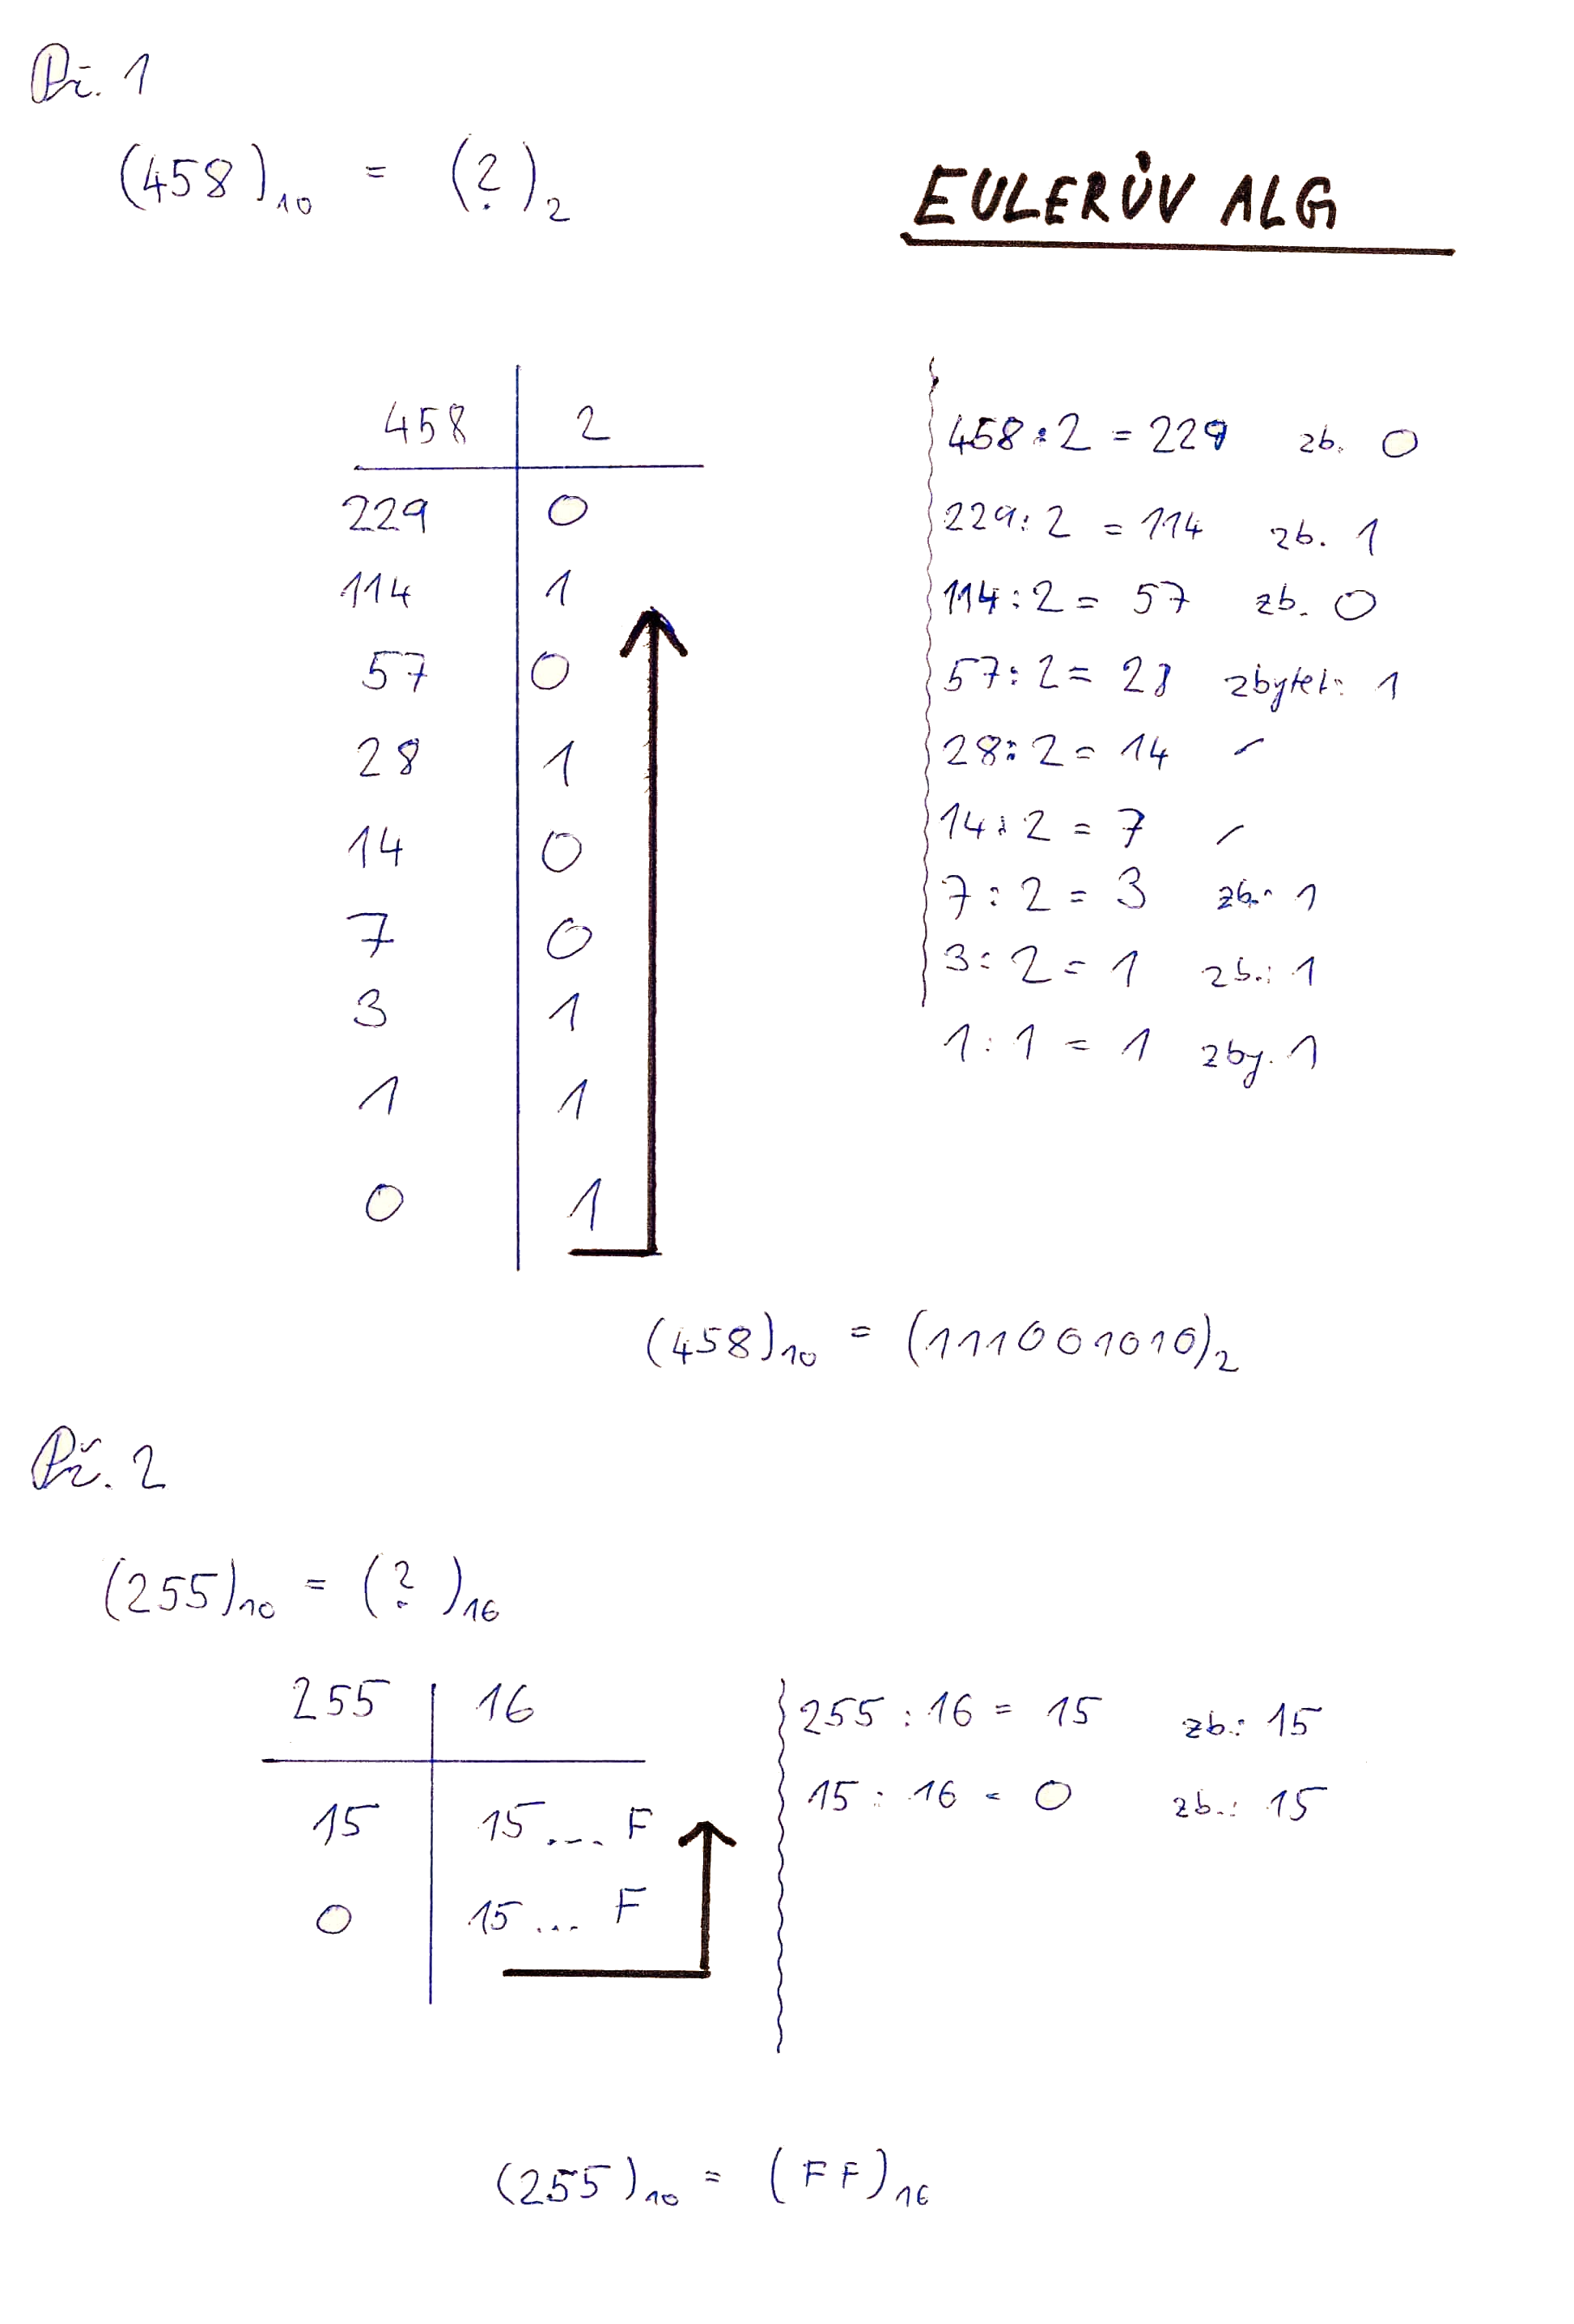 Př. 1
(458)₁₀ = (?)₂
EULERŮV ALG
458 2
229 0
114 1
57 0
28 1
14 0
7 0
3 1
1 1
0 1
458:2 = 229 zb. 0
229:2 = 114 zb. 1
114:2 = 57 zb. 0
57:2 = 28 zbytek: 1
28:2 = 14 –
14:2 = 7 –
7:2 = 3 zb.: 1
3:2 = 1 zb.: 1
1:1 = 1 zby. 1
(458)₁₀ = (111001010)₂
Př. 2
(255)₁₀ = (?)₁₆
255 16
15 15... F
0 15... F
255:16 = 15 zb.: 15
15:16 = 0 zb.: 15
(255)₁₀ = (FF)₁₆